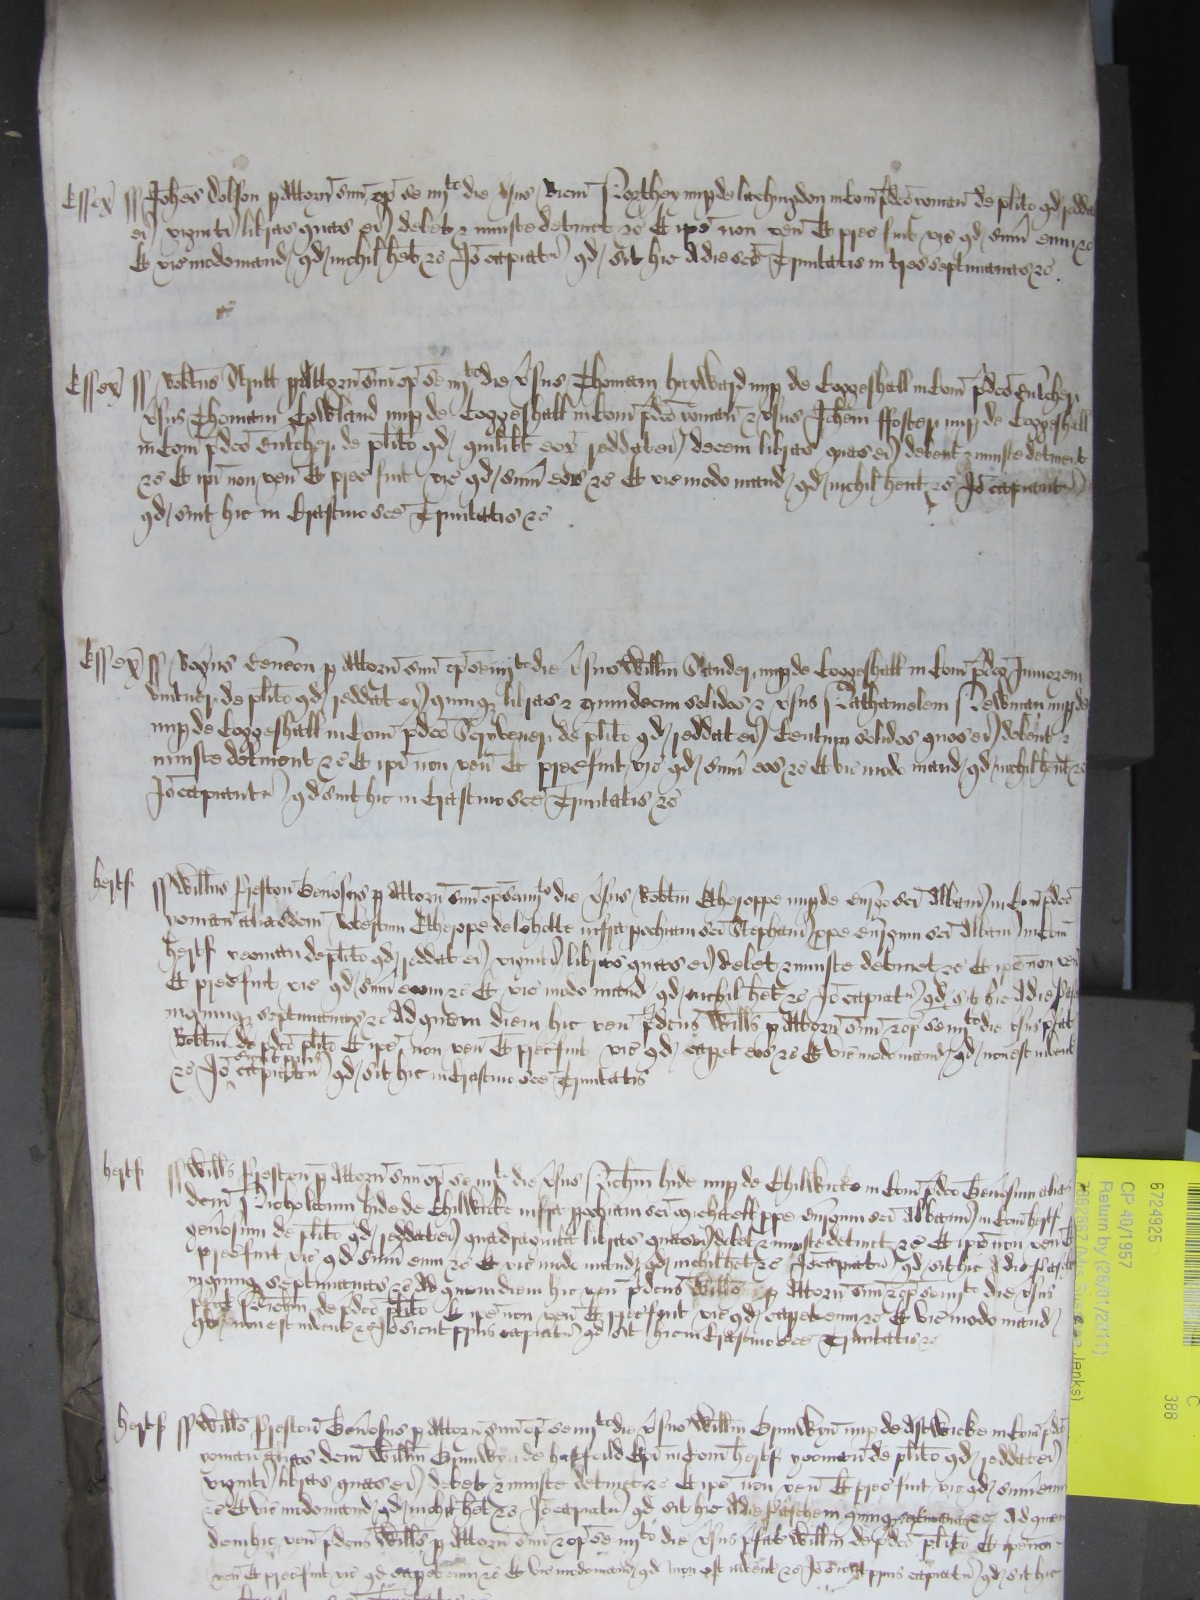 Essex ss Johes Dolson p Attorn suu op se iiijto die vsus Ricm Northey nup de lachingdon in Com pdco yoman de plito qd reddat
ei viginti libras quas ei debet & iniuste detinet &c Et ipe non ven Et prec fuit vic qd sum eum &c
Et vic modo mand qd nichil het &c Io capiat qd sit hic A die sce Trinitatis in tres septimanas &c
Essex ss Robtus p Attorn suu op se iiijto die vsus Thomam hayward nup de Coggeshall in Com pdco Butcher
vsus Thomam Cowland nup de Coggeshall in Com pdco yoman & vsus Johem ffoster nup de Coggeshall
in Com pdco Butcher de plito qd quilibt eor reddat ei decem libras quas ei debent & iniuste detinent
&c Et ipi non ven Et prec fuit vic qd sum eos &c Et vic modo mand qd nichil hent &c Io capiantr
qd sint hic in Crastino sce Trinitatis &c
Essex ss Rogus p Attorn suu op se iiijto die vsus Willm Sander nup de Coggeshall in Com pdco Juniorem
de plito qd reddat ei quinq libras & quindecim solidos & vsus Nathanielem Newman nup de
nup de Coggeshall in Com pdco Scryvener de plito qd reddat ei Centum solidos quos ei debent &
iniuste detinent &c Et ipi non ven Et prec fuit vic qd sum eos &c Et vic modo mand qd nichil hent &c
Io capiantr qd sint hic in Crastino sce Trinitatis &c
hertf ss Willus Preston Genosus p Attorn suu op se iiijto die vsus Robtm Etheroppe nup de sci Albani in Com pdco
yoman alias dcm Robertum Etherope de infra pochiam sci Stephani ppe sci Albani in Com
hertf yeoman de plito qd reddat ei viginti libras quas ei debet & iniuste detinet &c Et ipe non ven
Et prec fuit vic qd sum eum &c Et vic modo mand qd nichil het &c Io capiat qd sit hic A die Pasche
in quinq septimanas &c Ad quem diem hic ven pdcus Wills p Attorn suu & op se iiijto die vsus pfat
Robtm de pdco plito Et ipe non ven Et prec fuit vic qd capet eos &c Et vic modo mand qd non est invent
&c Io sicut pplus capiat qd sit hic in Crastino sce Trinitatis
hertf ss Wills Preston p Attorn suu op se iiijto die vsus Nichm hide nup de Chilwicke in Com pdco Genosum alias
dcm Nicholaum hide de Chilwicke infra pochiam sci Michaelis ppe sci Albani in Com hertf
genosum de plito qd reddat ei quadraginta libras quas ei debet & iniuste detinet &c Et ipe non ven Et
prec fuit vic qd sum eum &c Et vic modo mand qd nichil het &c Io capiat qd sit hic A die Pasche
in quinq septimanas &c Ad quem diem hic ven pdcus Wills p Attorn suu & op se iiijto die vsus
pfat Nichm de pdco plito Et ipe non ven Et prec fuit vic qd capet eum &c Et vic modo mand
qd non est invent &c Io sicut pplus capiat qd sit hic in Crastino sce Trinitatis &c
hertf ss Wills Preston Genosus p Attorn suu op se iiijto die vsus Willm Gunwyn nup de Astwicke in Com pdco
yoman alias dcm Willm Gunwyn de hatfeild Epi in Com hertf yoman de plito qd reddat ei
viginti libras quas ei debet & iniuste detinet &c Et ipe non ven Et prec fuit vic qd sum eum
&c Et vic modo mand qd nichil het &c Io capiat qd sit hic A die Pasche in quinq septimanas &c Ad quem
diem hic ven pdcus Wills p Attorn suu & op se iiijto die vsus pfat Willm de pdco plito Et ipe non
ven Et prec fuit vic qd capet eum &c Et vic modo mand qd non est invent &c Io sicut pplus capiat qd sit hic
Trinitatis &c
6724925
CP 40/1957
Return by (28/01/2211)
Jenks)
C
388